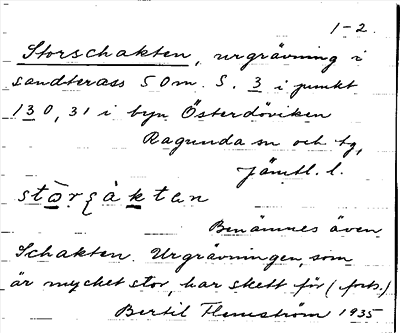 1-2.
Storschakten, urgrävning i
sandterass 50m. S. 3 i punkt
130,31 i byn Österdöviken
Ragunda sn och tg,
Jämtl. l.
stòrʃàktan
Benämnes även
Schakten. Urgrävningen, som
är mycket stor, har skett för (forts.)
Bertil Flemström 1935